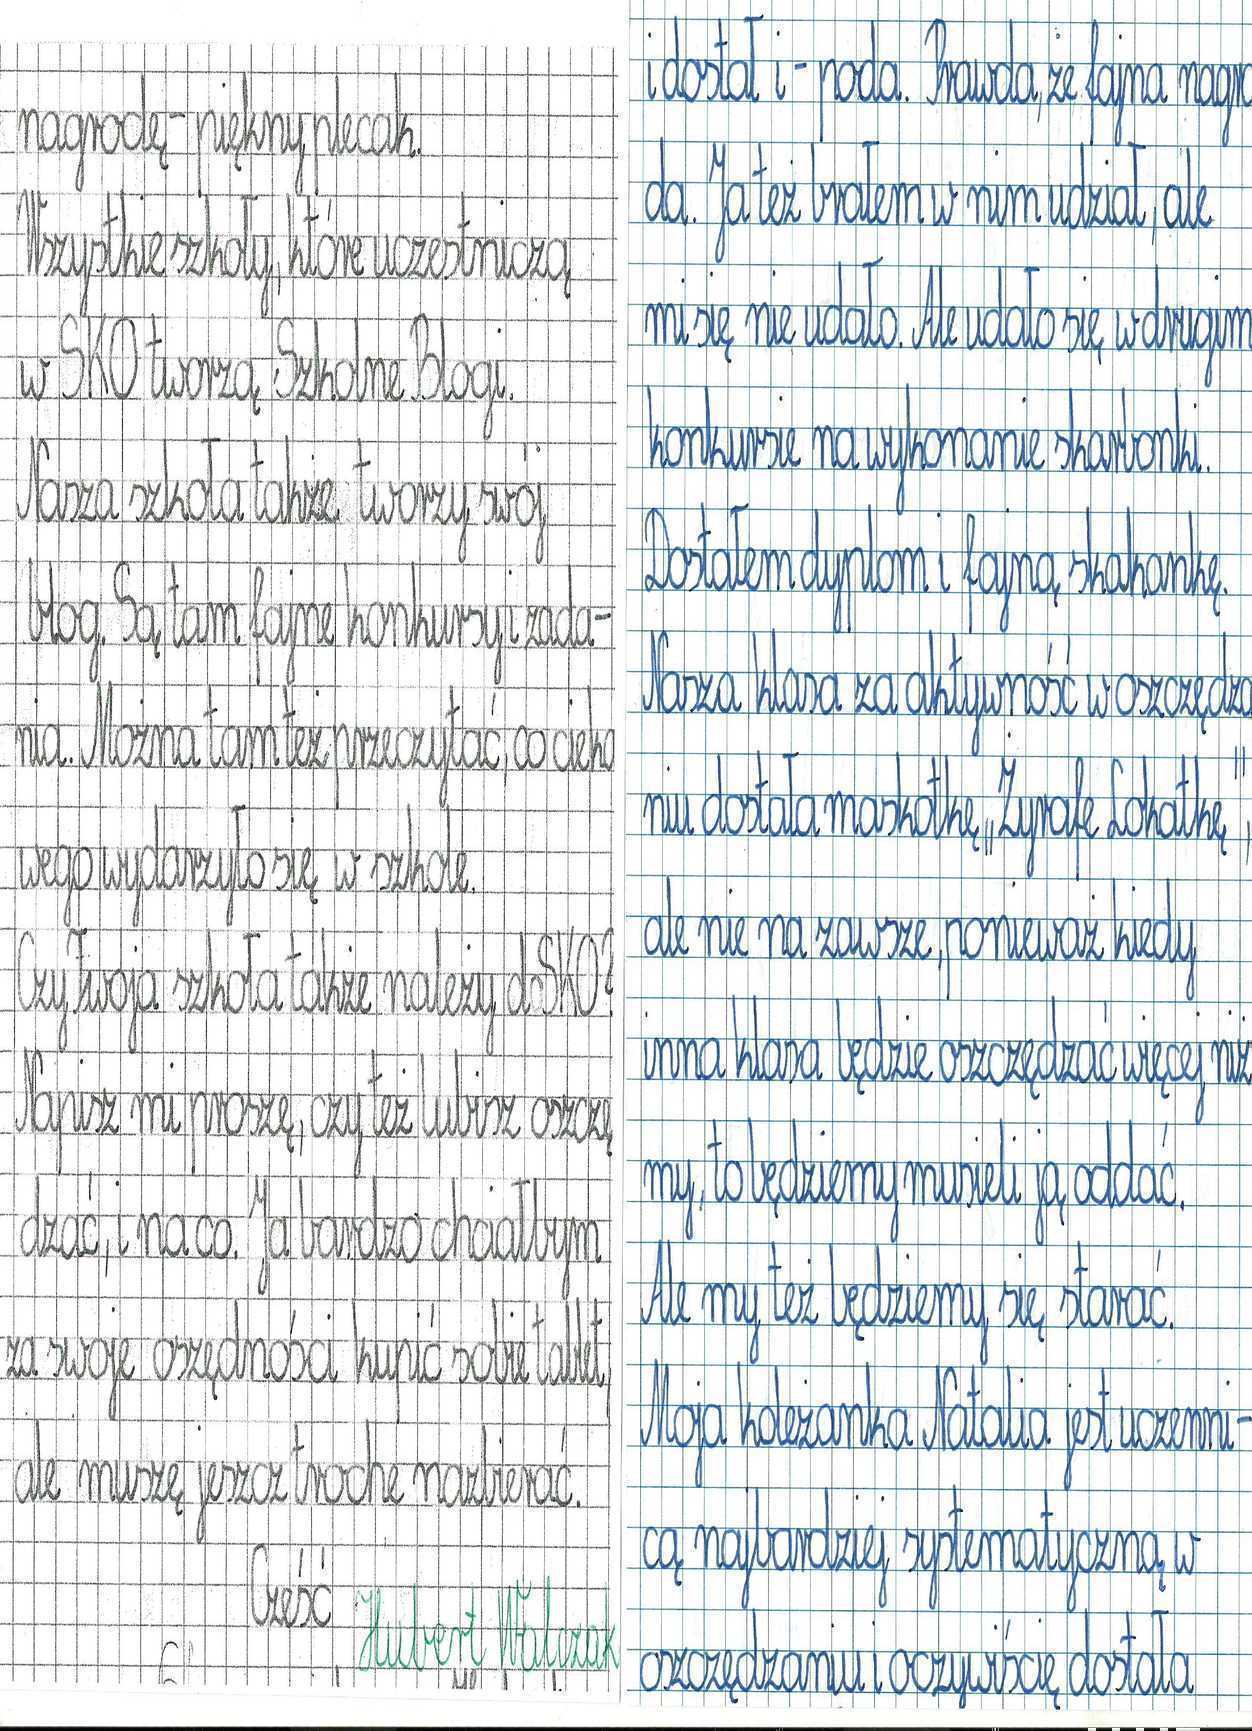 nagrodę - piękny plecak.
Wszystkie szkoły, które uczestniczą
w SKO tworzą Szkolne Blogi.
Nasza szkoła także tworzy swój
blog. Są tam fajne konkursy i zada-
nia. Można tam też przeczytać, co cieka
wego wydarzyło się w szkole.
Czy Twoja szkoła także należy do SKO?
Napisz mi proszę, czy też lubisz oszczę
dzać, i na co. Ja bardzo chciałbym
za swoje oszędności kupić sobie tablet,
ale muszę jeszcz troche nazbierać.
Cześć
Hubert Walczak
i dostał i - poda. Prawda, że fajna nagro
da. Ja też brałem w nim udział, ale
mi się nie udało. Ale udało się w drugim
konkursie na wykonanie skarbonki.
Dostałem dyplom i fajną skakankę.
Nasza klasa za aktywność w oszczędza
niu dostała maskotkę „Żyrafe Lokatkę",
ale nie na zawsze, ponieważ kiedy
inna klasa będzie oszczędzać więcej niż
my, to będziemy musieli ją oddać.
Ale my też będziemy się starać.
Moja koleżanka Natalia jest uczenni-
cą najbardziej systematyczną w
oszczędzaniu i oczywiścię dostała